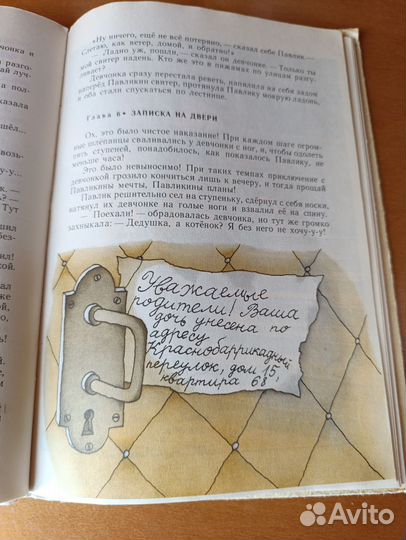 „Ну ничего, ещё не всё потеряно, — сказал себе Павлик. —
Слетаю, как ветер, домой, и обратно!"
— Ладно уж, пошли, — сказал он девчонке. — Только ты
мой свитер надень. Кто же в пижамах по улицам разгу-
ливает?
Девчонка сразу перестала реветь, напялила на себя задом
наперёд Павликин свитер, протянула Павлику мокрую ладонь,
и оба стали спускаться по лестнице.
Глава 6 • ЗАПИСКА НА ДВЕРИ
Ох, это было чистое наказание! При каждом шаге огром-
ные шлёпанцы сваливались у девчонки с ног, и, чтобы одолеть
пять ступеней, понадобилось, как показалось Павлику, не
меньше часа!
Это было невыносимо! При таких темпах приключение с
девчонкой грозило кончиться лишь к вечеру, и тогда прощай
Павликины мечты, Павликины планы!
Павлик решительно сел на ступеньку, сдёрнул с себя носки,
натянул их девчонке на голые ноги и взвалил её на спину.
— Поехали! — обрадовалась девчонка, но тут же громко
захныкала: — Дедушка, а котёнок? Я без него не хочу-у-у!
Уважаемые
родители! Ваша
дочь унесена по
адресу
Краснобаррикадный
переулок, дом 15,
квартира 68
вчонка и
разго-
чай луч-
а пол-
казала
шёл...
возь-
у-у...
? Тут
шил
без-
кой.
Avito